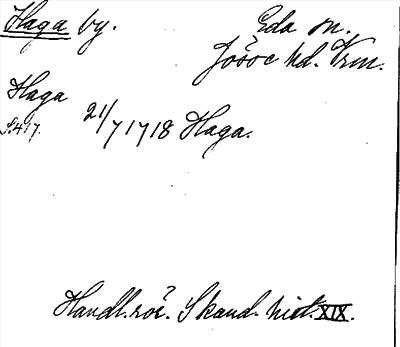 Haga by. Eda sn.
Jösse hd. Vrm.
Haga
S. 417. 21/7 1718 Haga.
Handl. rör. Skand. hist. XIX.